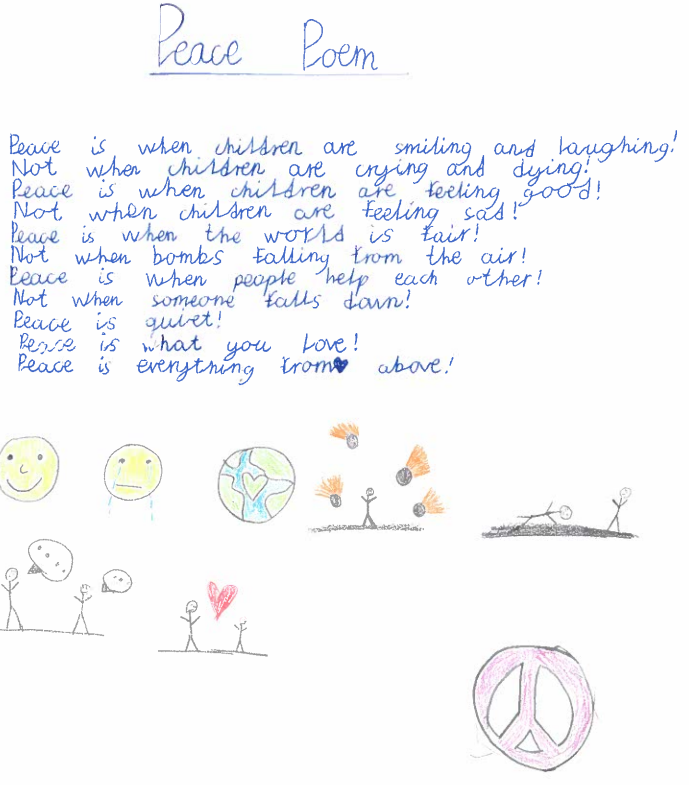 Peace Poem
Peace is when children are smiling and laughing!
Not when children are crying and dying!
Peace is when children are feeling good!
Not when children are feeling sad!
Peace is when the world is fair!
Not when bombs falling from the air!
Peace is when people help each other!
Not when someone falls down!
Peace is quiet!
Peace is what you love!
Peace is everything from above!